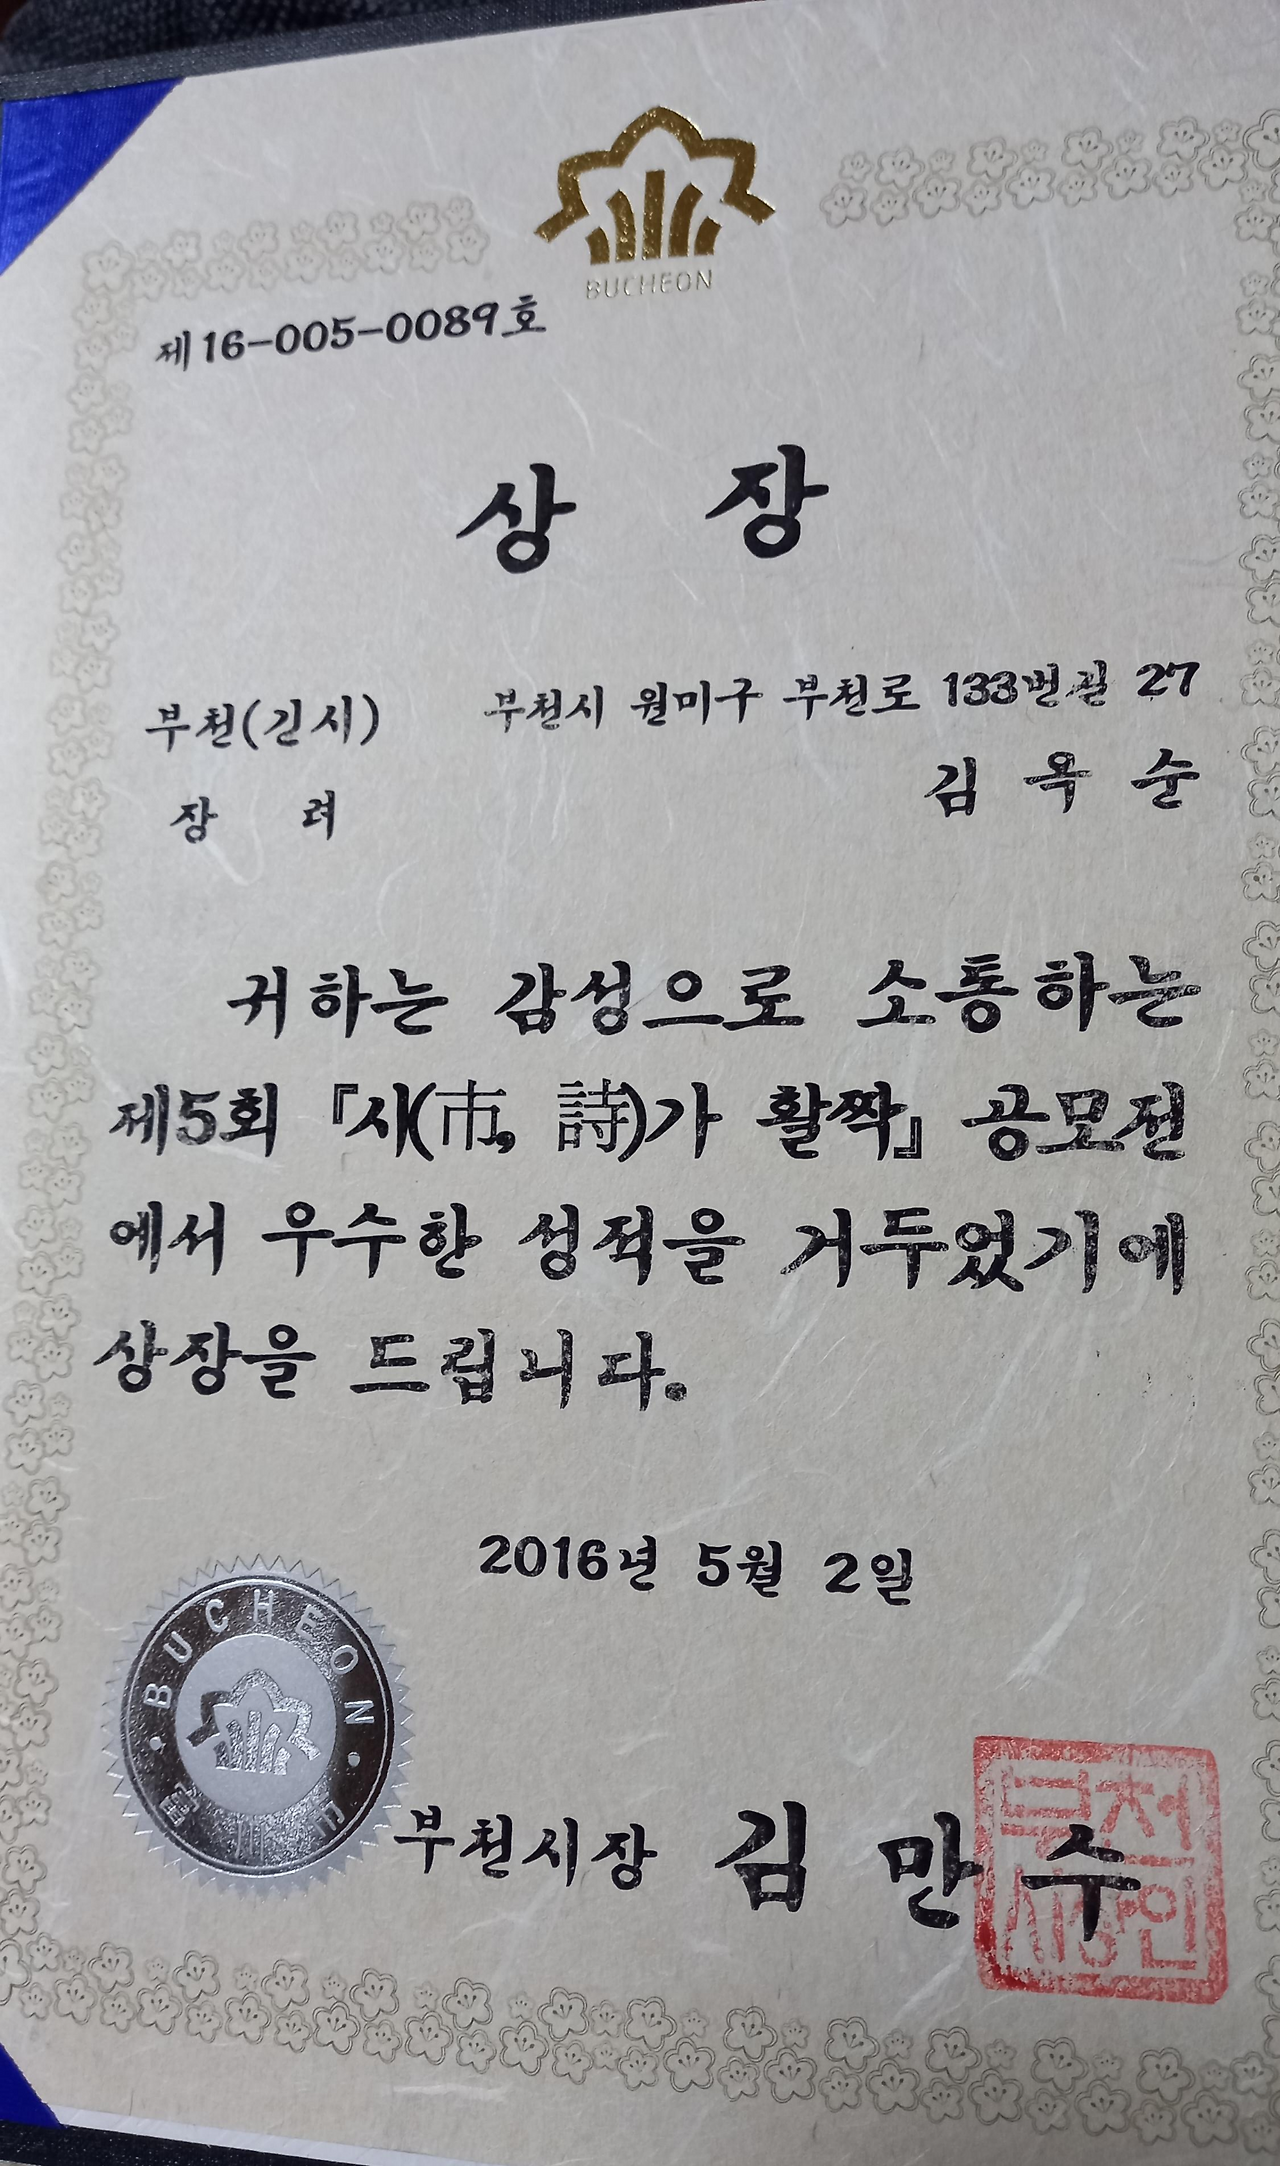 BUCHEON
제16-005-0089호
상 장
부천(긴시) 부천시 원미구 부천로 133번길 27
장 려 김 옥 순
귀하는 감성으로 소통하는
제5회 『시(市, 詩)가 활짝』 공모전
에서 우수한 성적을 거두었기에
상장을 드립니다.
2016년 5월 2일
BUCHEON
富川市
부천시장 김 만 수
부천
시장인